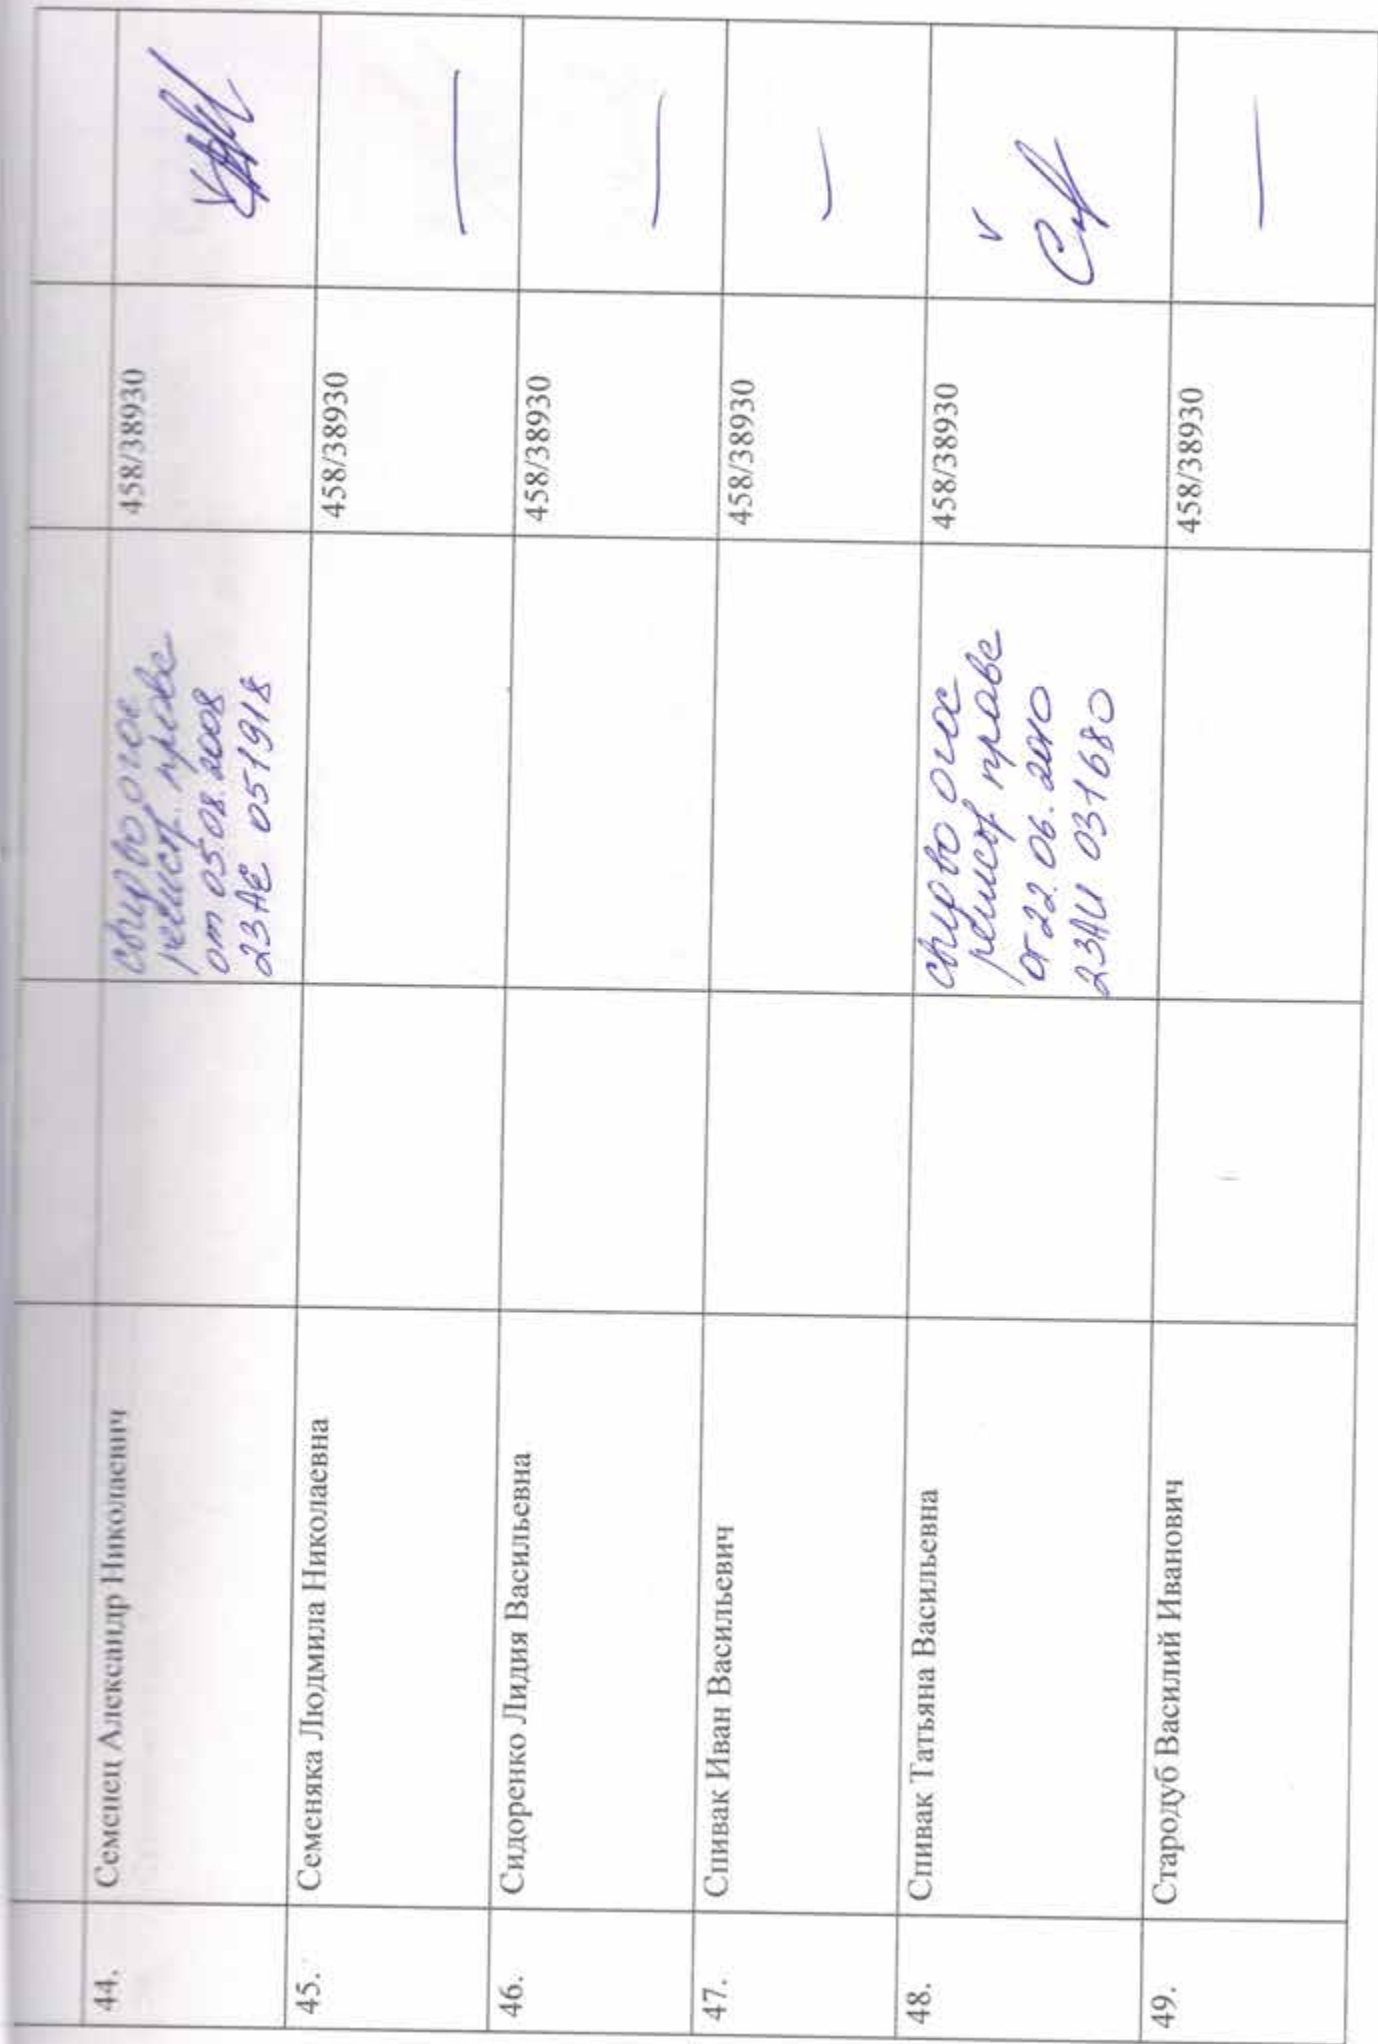 44. Семенец Александр Николаевич
свид во о гос
регистр. праве
от 05.08.2008
23АЕ 051918
458/38930
45. Семеняка Людмила Николаевна 458/38930 —
46. Сидоренко Лидия Васильевна 458/38930 —
47. Спивак Иван Васильевич 458/38930 —
48. Спивак Татьяна Васильевна
свид во о гос
регистр праве
от 22.06.2010
23АИ 031680
458/38930 v
49. Стародуб Василий Иванович 458/38930 —